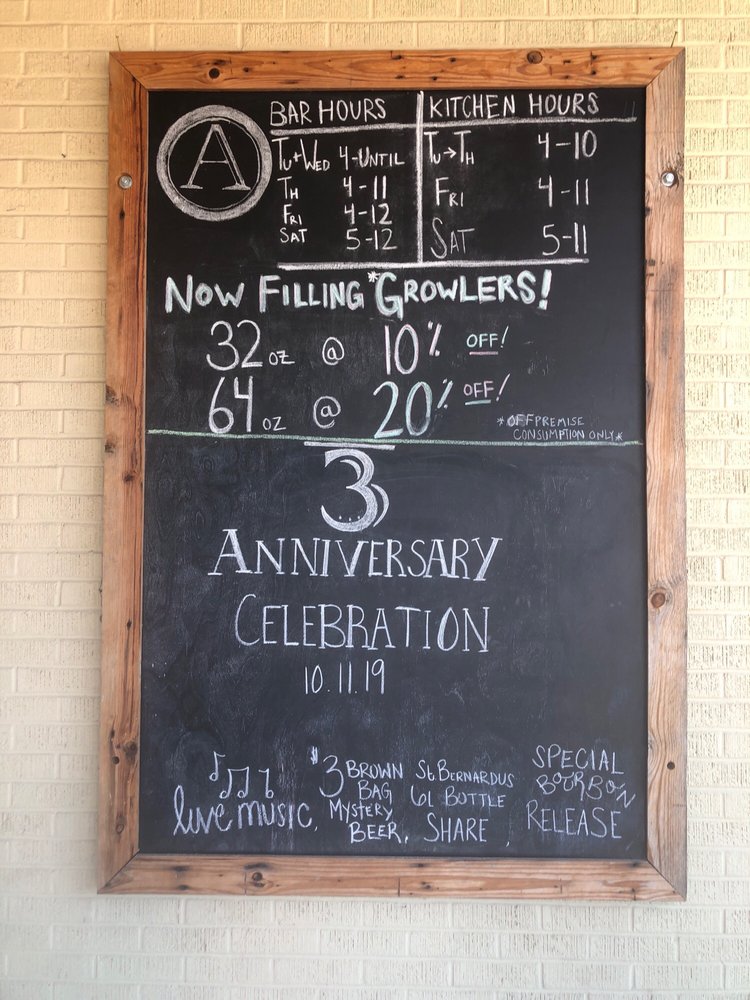 A
BAR HOURS
Tu+Wed 4-Until
Th 4-11
Fri 4-12
Sat 5-12
KITCHEN HOURS
Tu→Th 4-10
Fri 4-11
Sat 5-11
Now Filling *Growlers!
32 oz @ 10% OFF!
64 oz @ 20% OFF!
*OFF PREMISE
CONSUMPTION ONLY*
3
ANNIVERSARY
CELEBRATION
10.11.19
live music,
$3 BROWN
BAG
MYSTERY
BEER,
St. BERNARDUS
6L BOTTLE
SHARE,
SPECIAL
BOURBON
RELEASE